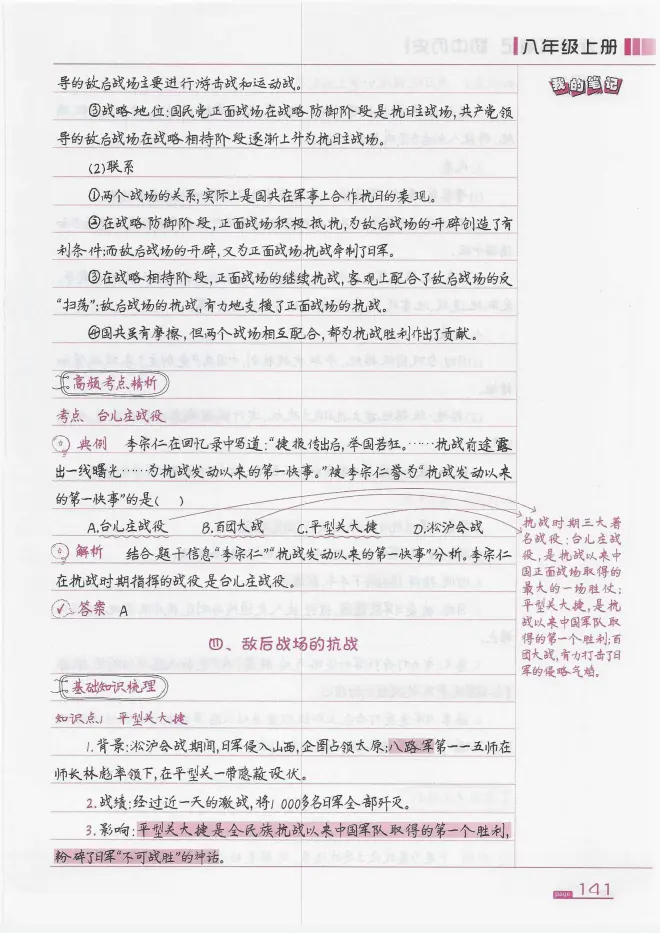 八年级上册
我的笔记
导的敌后战场主要进行游击战和运动战。
③战略地位:国民党正面战场在战略防御阶段是抗日主战场,共产党领
导的敌后战场在战略相持阶段逐渐上升为抗日主战场。
(2)联系
①两个战场的关系,实际上是国共在军事上合作抗日的表现。
②在战略防御阶段,正面战场积极抵抗,为敌后战场的开辟创造了有
利条件;而敌后战场的开辟,又为正面战场抗战牵制了日军。
③在战略相持阶段,正面战场的继续抗战,客观上配合了敌后战场的反
“扫荡”;敌后战场的抗战,有力地支援了正面战场的抗战。
④国共虽有摩擦,但两个战场相互配合,都为抗战胜利作出了贡献。
高频考点精析
考点 台儿庄战役
典例 李宗仁在回忆录中写道:“捷报传出后,举国若狂。……抗战前途露
出一线曙光……为抗战发动以来的第一快事。”被李宗仁誉为“抗战发动以来
的第一快事”的是( )
A.台儿庄战役 B.百团大战 C.平型关大捷 D.淞沪会战
解析 结合题干信息“李宗仁”“抗战发动以来的第一快事”分析,李宗仁
在抗战时期指挥的战役是台儿庄战役。
答案 A
抗战时期三大著
名战役:台儿庄战
役,是抗战以来中
国正面战场取得的
最大的一场胜仗;
平型关大捷,是抗
战以来中国军队取
得的第一个胜利;百
团大战,有力打击了日
军的侵略气焰。
四、敌后战场的抗战
基础知识梳理
知识点1 平型关大捷
1.背景:淞沪会战期间,日军侵入山西,企图占领太原;八路军第一一五师在
师长林彪率领下,在平型关一带隐蔽设伏。
2.战绩:经过近一天的激战,将1 000多名日军全部歼灭。
3.影响:平型关大捷是全民族抗战以来中国军队取得的第一个胜利,
粉碎了日军“不可战胜”的神话。
page 141